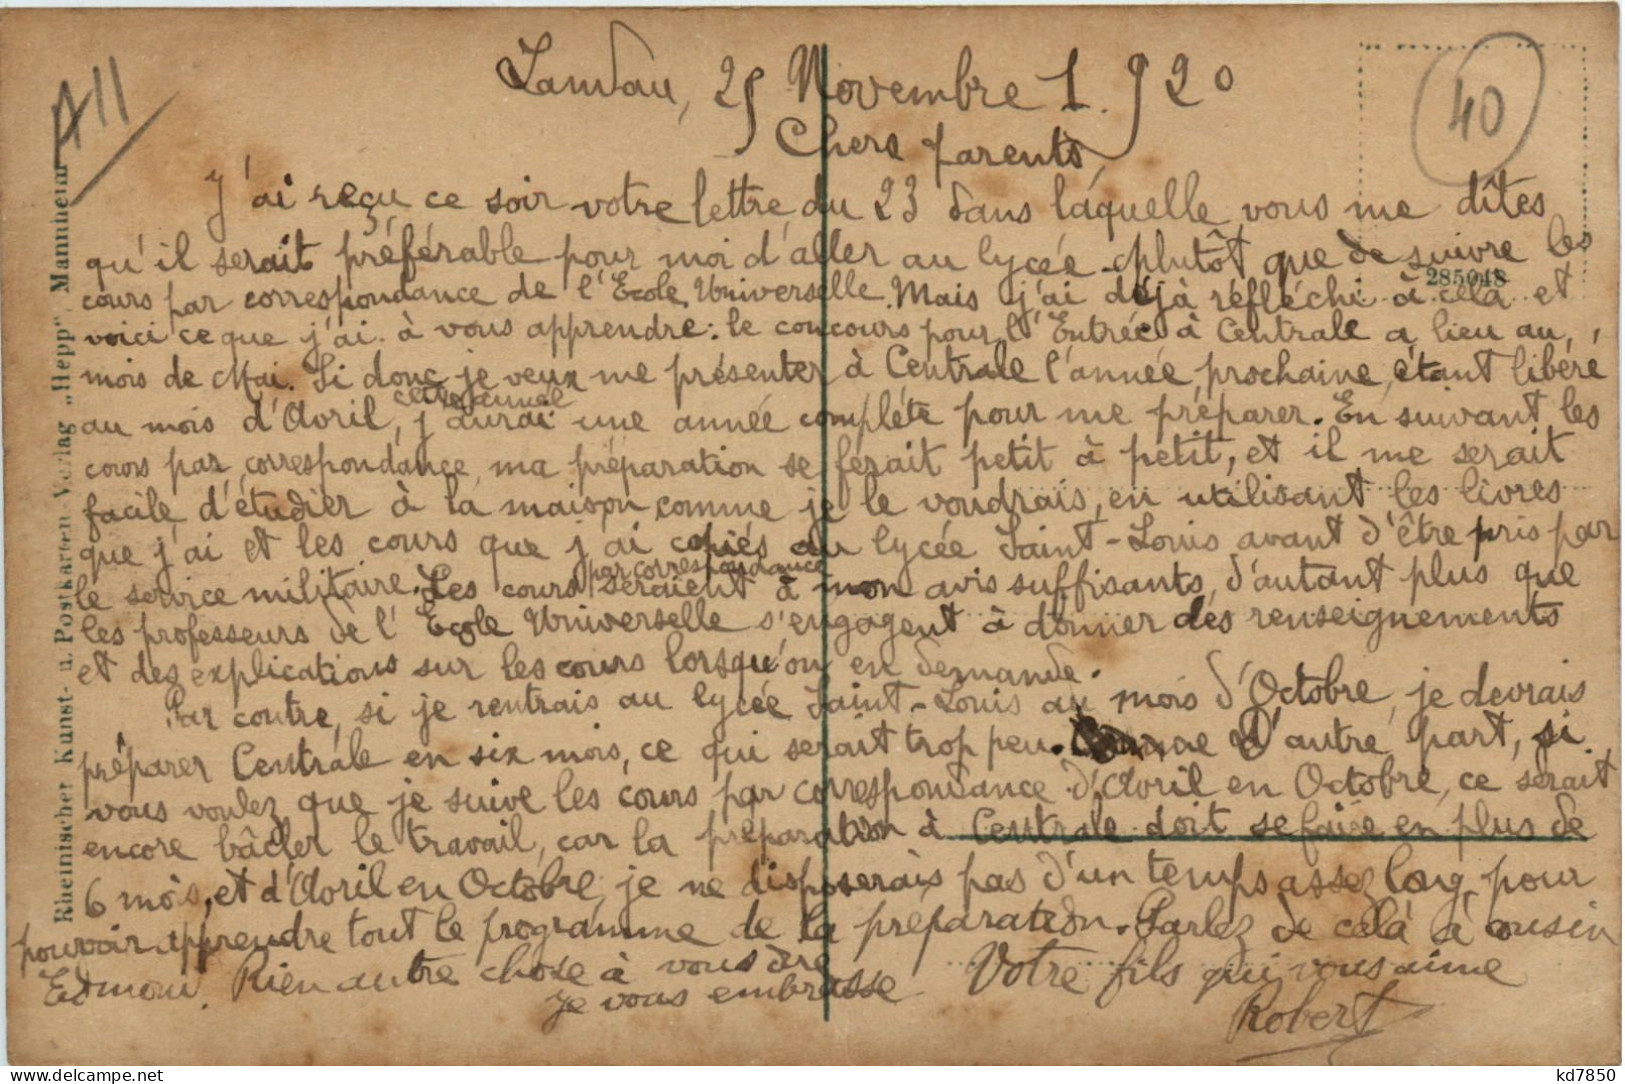 Landau, 25 Novembre 1.920
Chers parents,
J'ai reçu ce soir votre lettre du 23 dans laquelle vous me dîtes
qu'il serait préférable pour moi d'aller au lycée plutôt que de suivre les
cours par correspondance de l'École Universelle. Mais j'ai déjà réfléchi à celà et
voici ce que j'ai à vous apprendre : le concours pour l'Entrée à Centrale a lieu au
mois de Mai. Si donc je veux me présenter à Centrale l'année prochaine, étant libéré
cette année
au mois d'Avril, j'aurai une année complète pour me préparer. En suivant les
cours par correspondance, ma préparation se ferait petit à petit, et il me serait
facile d'étudier à la maison comme je le voudrais, en utilisant les livres
que j'ai et les cours que j'ai copiés au lycée Saint-Louis avant d'être pris par
par correspondance
le service militaire. Les cours seraient à mon avis suffisants, d'autant plus que
les professeurs de l'École Universelle s'engagent à donner des renseignements
et des explications sur les cours lorsqu'on en demande.
Par contre, si je rentrais au lycée Saint-Louis au mois d'Octobre, je devrais
préparer Centrale en six mois, ce qui serait trop peu. D'autre part, si
vous voulez que je suive les cours par correspondance d'Avril en Octobre, ce serait
encore bâcler le travail, car la préparation à Centrale doit se faire en plus de
6 mois, et d'Avril en Octobre, je ne disposerais pas d'un temps assez long, pour
pouvoir apprendre tout le programme de la préparation. Parlez de celà à cousin
Edmond. Rien autre chose à vous dire
Je vous embrasse Votre fils qui vous aime
Robert
A11
40
285048
Rheinischer Kunst- u. Postkarten-Verlag „Hepp“, Mannheim
kd7850